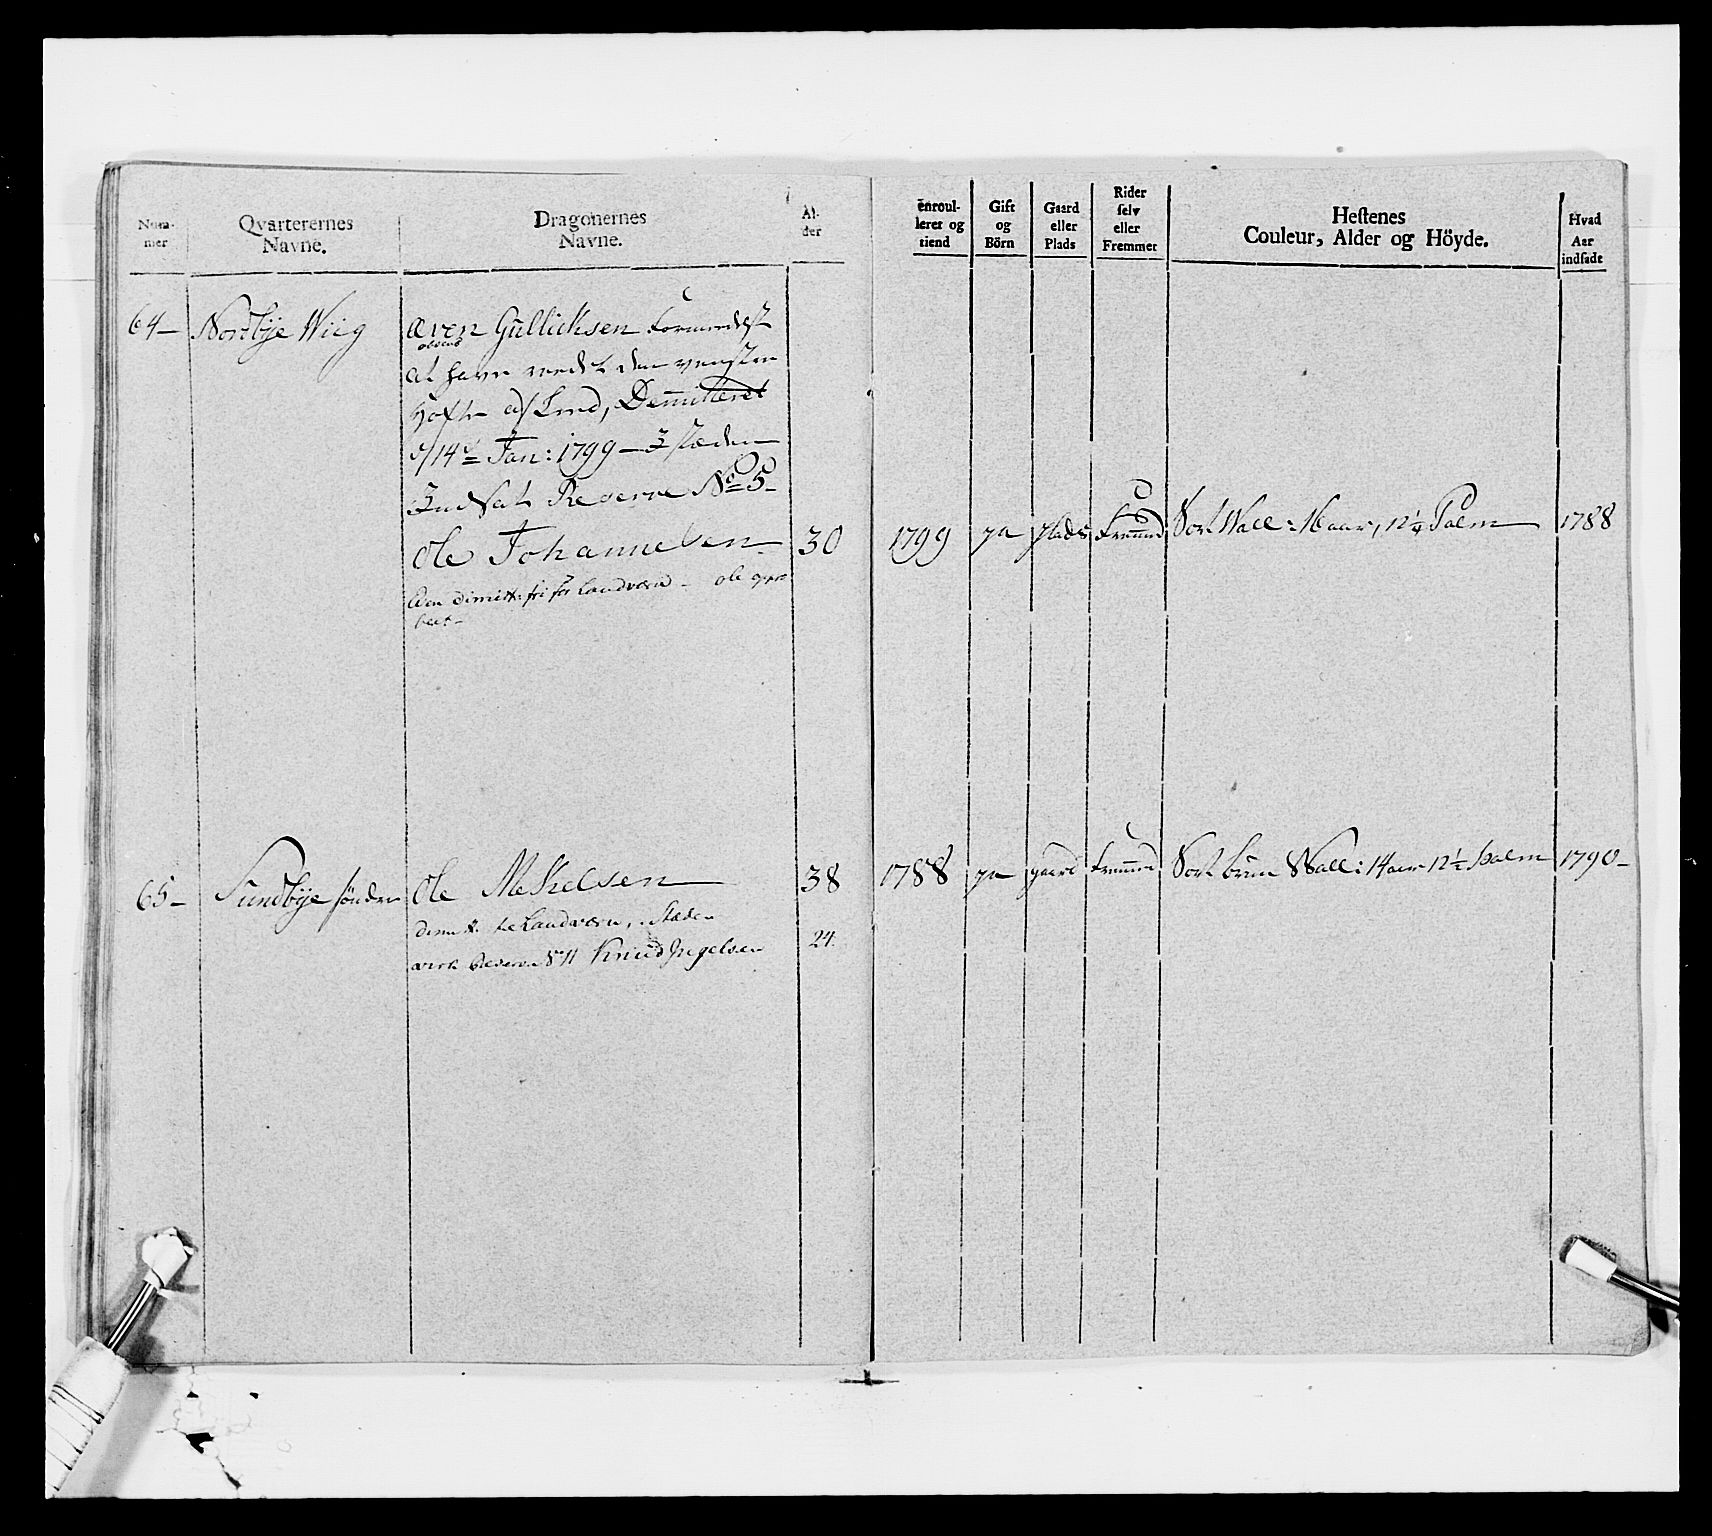 Num-
mer
Qvarterernes
Navne.
Dragonernes
Navne.
Al-
der
enroul-
lerer og
tiend
Gift
og
Börn
Gaard
eller
Plads
Rider
selv
eller
Fremmet
Hestenes
Couleur, Alder og Höyde.
Hvad
Aar
indsadt
64 - Nordbye Wiig
Even Gullichsen Formedelst
at have den venstre
Hofte af Lred, Demitteret
14de Jan: 1799 - I stæden
Indsat Reserve No 5 -
Ole Johannesen 30 1799 ja Plads Fremmed Sort Wall: 16 aar, 12 1/4 Palm 1788
Even dimitt: fri for Landværn - Ole
65 - Sundbye söndre Ole Mekelsen 38 1788 ja gaard Fremmed Sort brun Wall: 14 aar 12 1/2 Palm 1790 -
dimitt. Landværn, i Stæden
Reserve No 11 Knud Ingelsen 24.